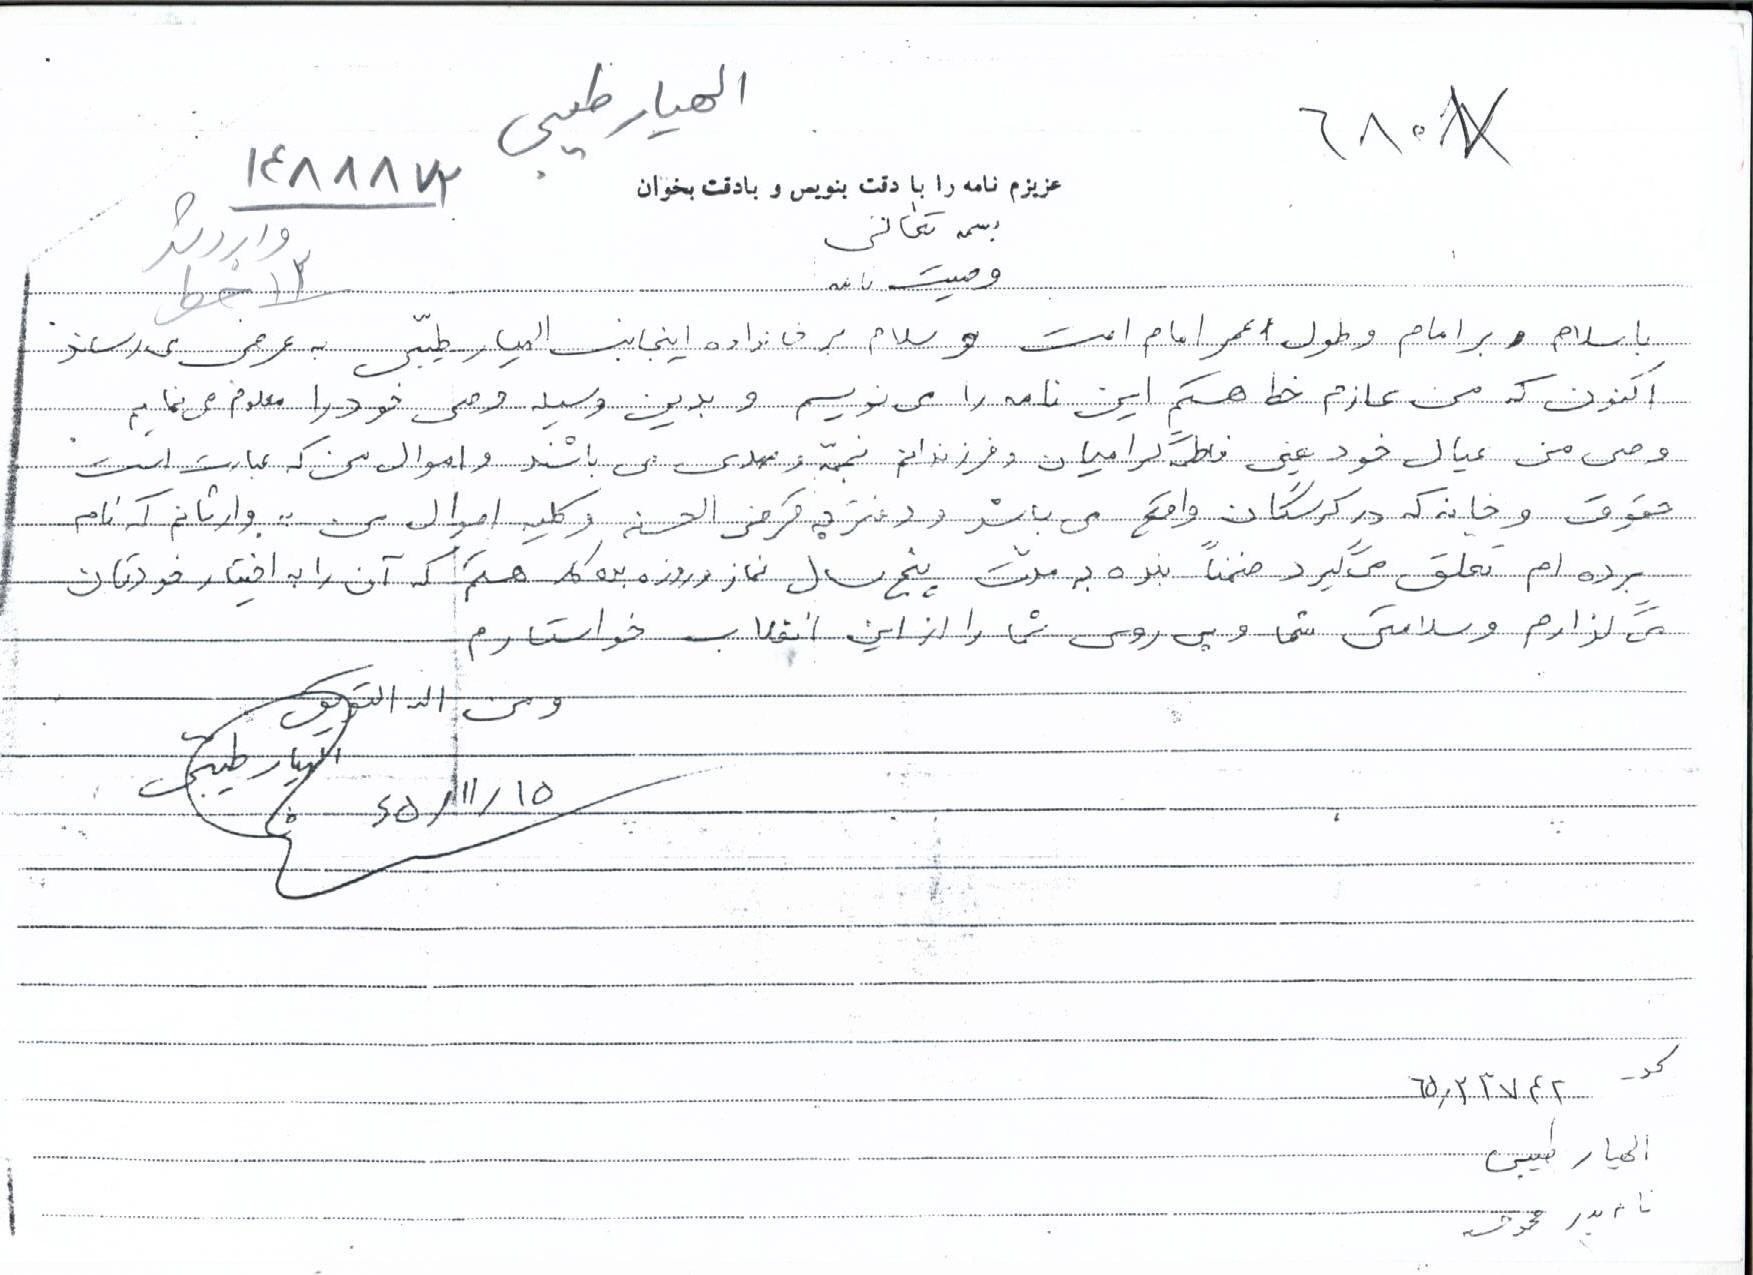 الهیار طیبی
۱۴۸۸۸۷۲
وارد شد
۱۲ خط
عزیزم نامه را با دقت بنویس و بادقت بخوان
بسمه تعالی
وصیت نامه
با سلام بر امام و طول عمر امام امت و سلام بر خانواده اینجانب الهیار طیبّی به عرض می رساند
اکنون که من عازم خط هستم این نامه را می نویسم و بدین وسیله وصی خود را معلوم می نمایم
وصی من عیال خود یعنی فاطمه گرامیان و فرزندانم نجمّه و مهدی می باشند و اموال من که عبارت است
حقوق و خانه که در کرسگان واقع می باشد و دفترچه قرض الحسنه و کلیه اموال من به وارثانم که نام
برده ام تعلق می گیرد ضمناً بنده به مدت پنج سال نماز و روزه بدهکار هستم که آن را به اختیار خودتان
می گذارم و سلامتی شما و پی روی شما را از این انقلاب خواستارم
و من الله التوفیق
الهیار طیبی
۶۵/۱۱/۱۵
کد ۶۵۰۲۳۷۴۲
الهیار طیبی
نام پدر